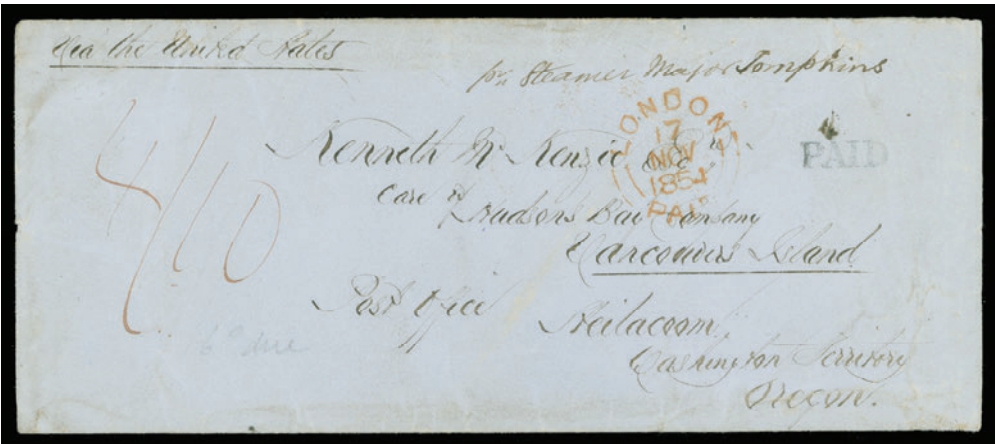 Via the United States
pr Steamer Major Tompkins
LONDON
17
NOV
1854
PAID
PAID
Kenneth Mc Kenzie Esqre
Care of Hudsons Bay Company
Vancouvers Island
4/10
Post Office Steilacoom
6d due
Washington Territory
Oregon.